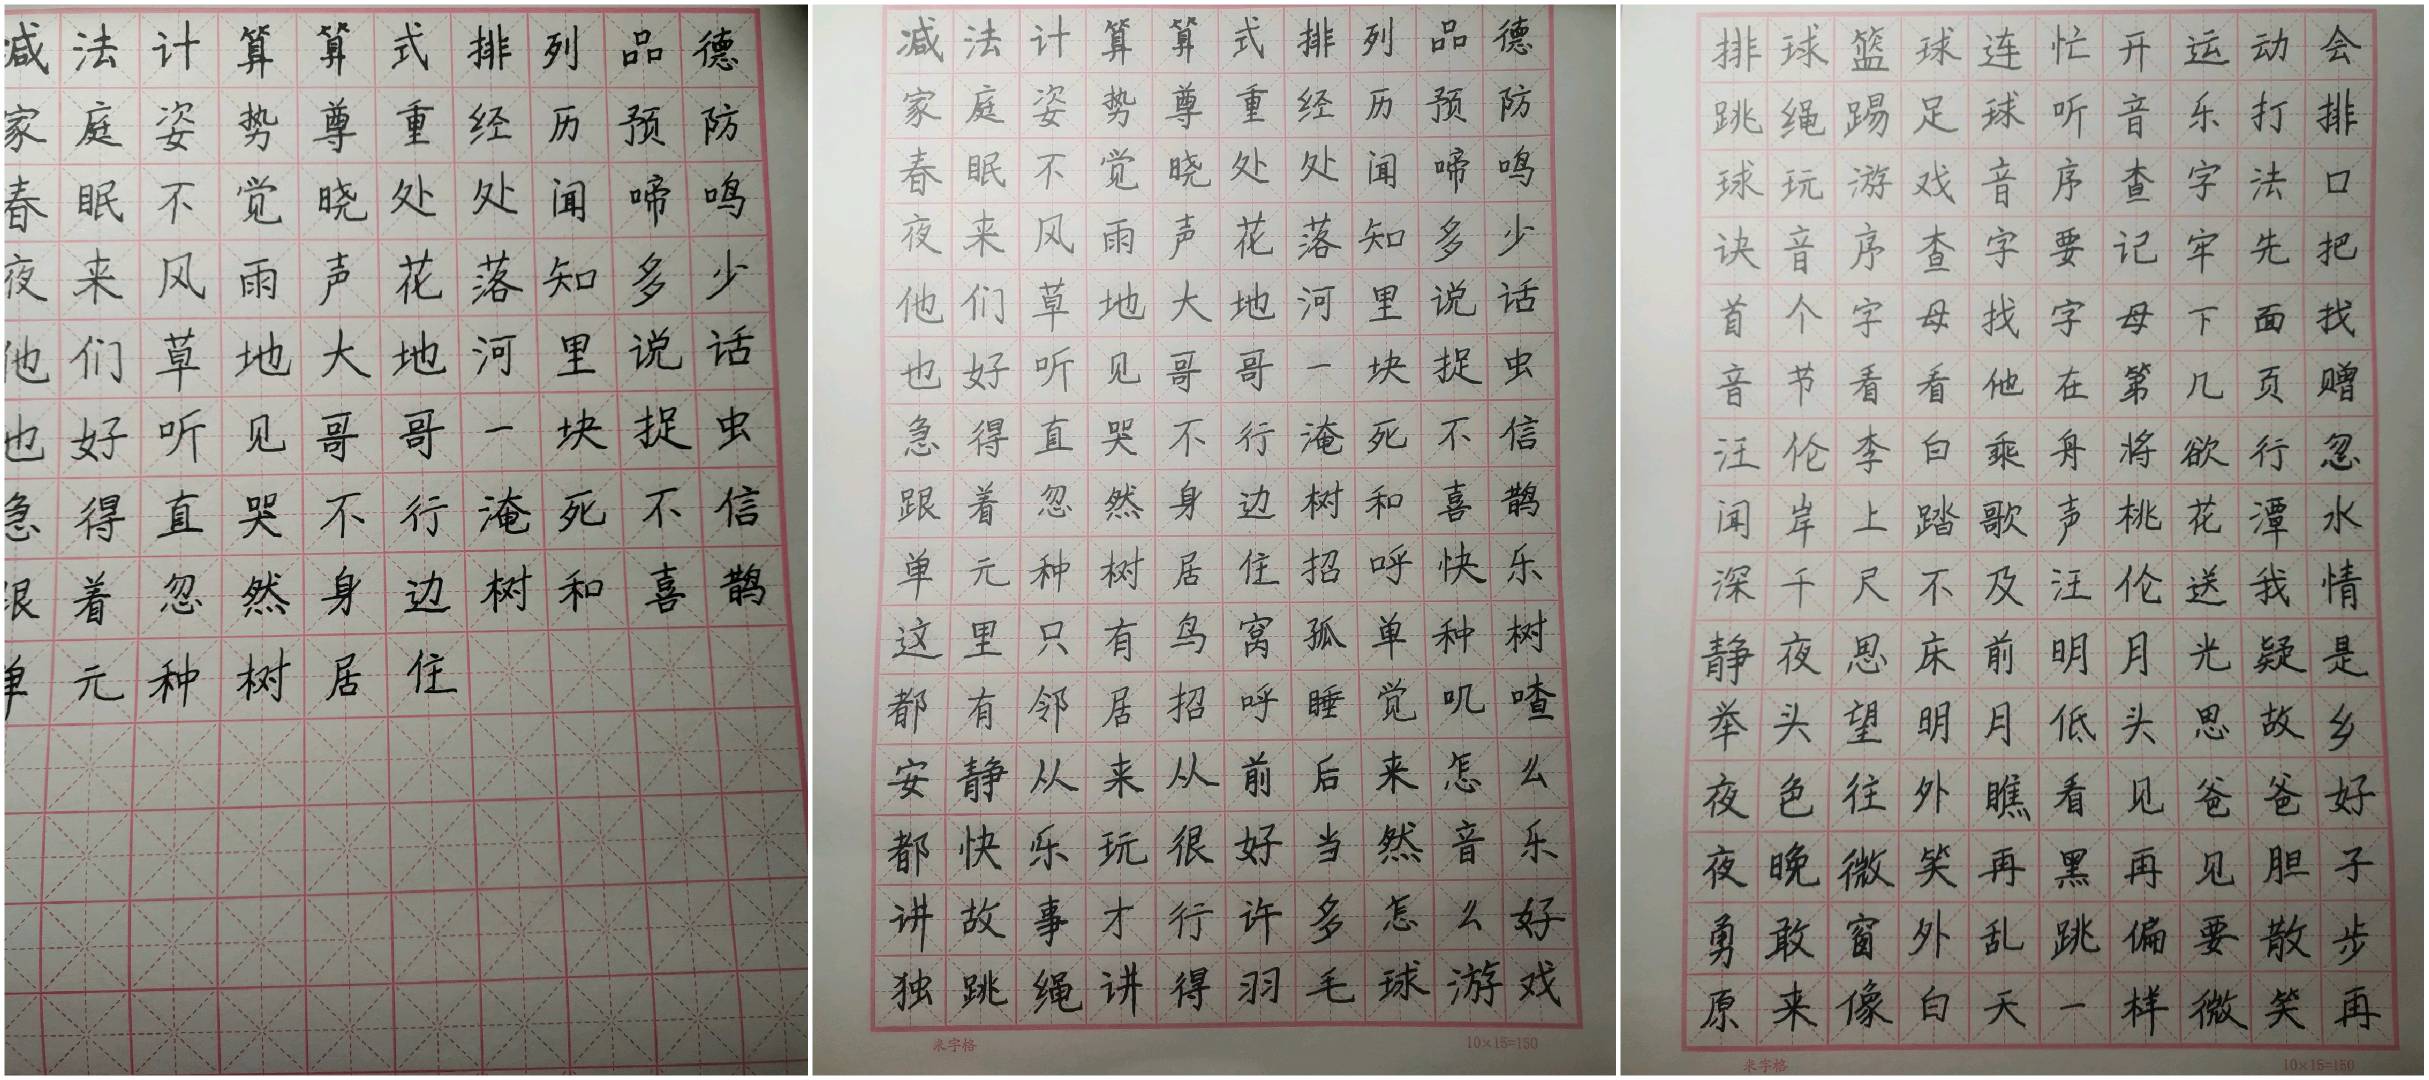 减法计算算式排列品德
家庭姿势尊重经历预防
春眠不觉晓处处闻啼鸣
夜来风雨声花落知多少
他们草地大地河里说话
也好听见哥哥一块捉虫
急得直哭不行淹死不信
跟着忽然身边树和喜鹊
单元种树居住
减法计算算式排列品德
家庭姿势尊重经历预防
春眠不觉晓处处闻啼鸣
夜来风雨声花落知多少
他们草地大地河里说话
也好听见哥哥一块捉虫
急得直哭不行淹死不信
跟着忽然身边树和喜鹊
单元种树居住招呼快乐
这里只有鸟窝孤单种树
都有邻居招呼睡觉叽喳
安静从来从前后来怎么
都快乐玩很好当然音乐
讲故事才行许多怎么好
独跳绳讲得羽毛球游戏
米字格 10×15=150
排球篮球连忙开运动会
跳绳踢足球听音乐打排
球玩游戏音序查字法口
诀音序查字要记牢先把
首个字母找字母下面找
音节看看他在第几页赠
汪伦李白乘舟将欲行忽
闻岸上踏歌声桃花潭水
深千尺不及汪伦送我情
静夜思床前明月光疑是
举头望明月低头思故乡
夜色往外瞧看见爸爸好
夜晚微笑再黑再见胆子
勇敢窗外乱跳偏要散步
原来像白天一样微笑再
米字格 10×15=150